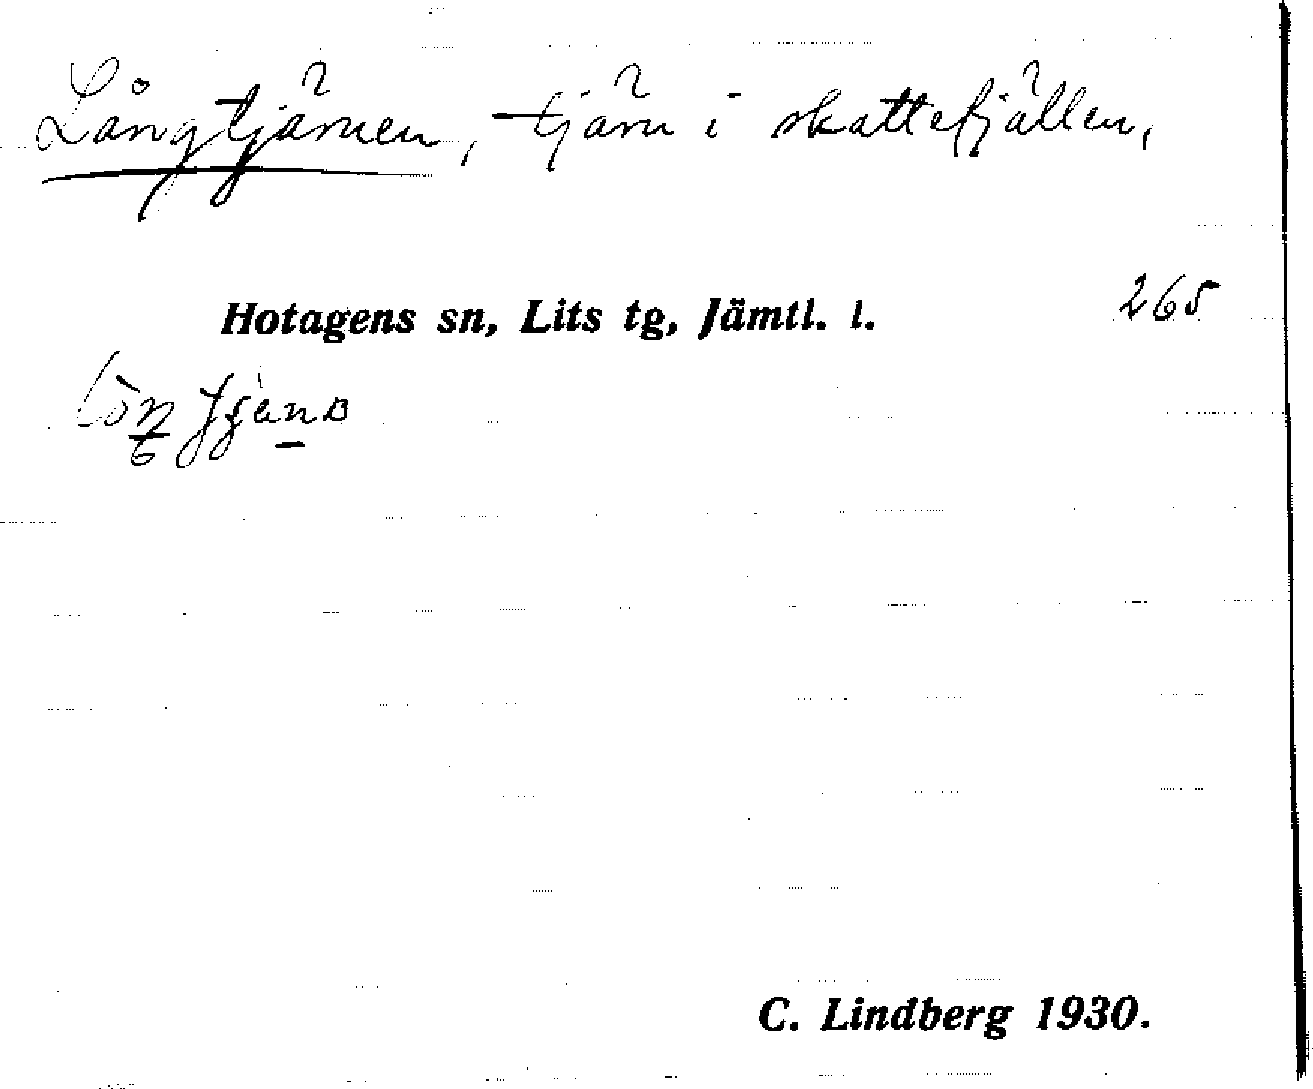 Långtjärnen, tjärn i skattefjällen,
Hotagens sn, Lits tg, Jämtl. l.
265
C. Lindberg 1930.